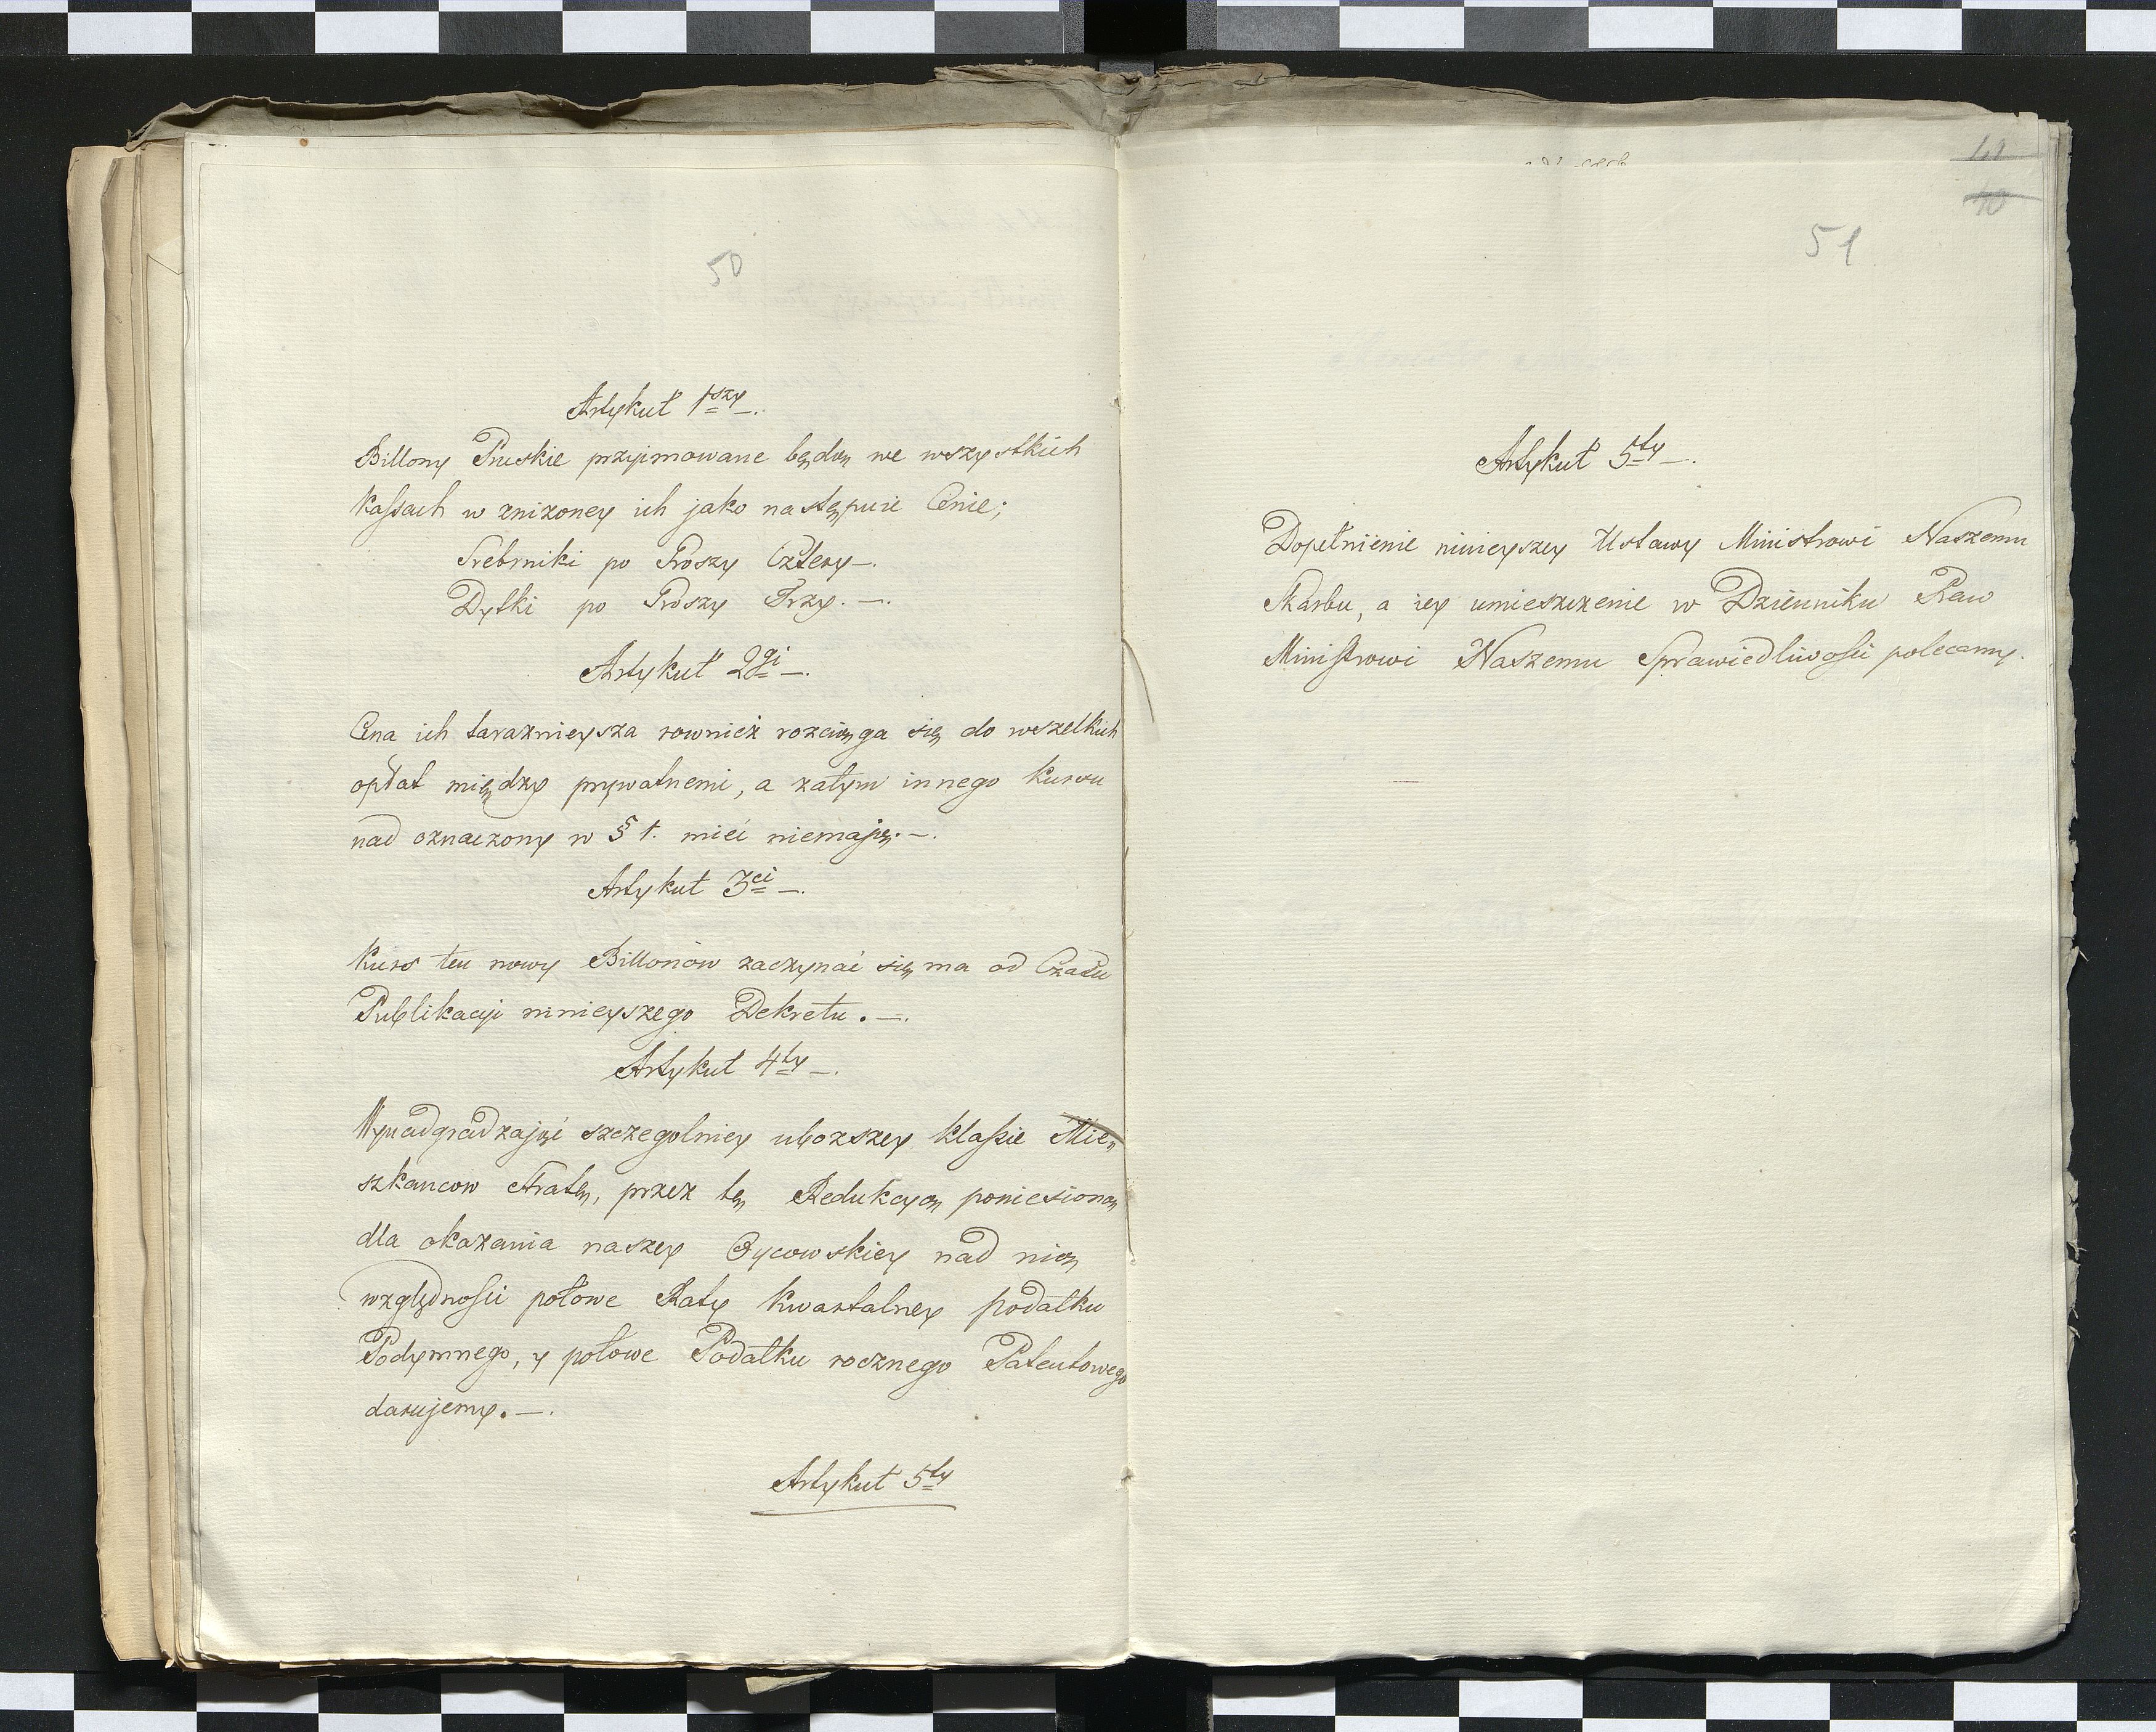 50
Artykuł 1szy —.
Billony Pruskie przyimowane będą we wszystkich
Kassach w zniżoney ich jako następuie Cenie;
Srebrniki po Groszy Cztery —.
Dytki po Groszy Trzy. —.
Artykuł 2gi —.
Cena ich taraznieysza rownież rozciąga się do wszelkich
opłat między prywatnemi, a zatym innego kursu
nad oznaczony w § 1. mieć niemają. —.
Artykuł 3ci —.
Kurs ten nowy Billonów zaczynać się ma od Czasu
Publikacyi ninieyszego Dekretu. —.
Artykuł 4ty —.
Wynadgradzając szczegolniey uboższey klassie Mie„
szkancow stratę, przez tę Redukcyą poniesioną
dla okazania naszey Oycowskiey nad nią
względności połowe Raty kwartalney podatku
Podymnego, y połowe Podatku rocznego Patentowego
darujemy. —.
Artykuł 5ty
10
51
Artykuł 5ty —.
Dopełnienie ninieyszey Ustawy Ministrowi Naszemu
Skarbu, a iey umieszczenie w Dzienniku Praw
Ministrowi Naszemu Sprawiedliwości polecamy.